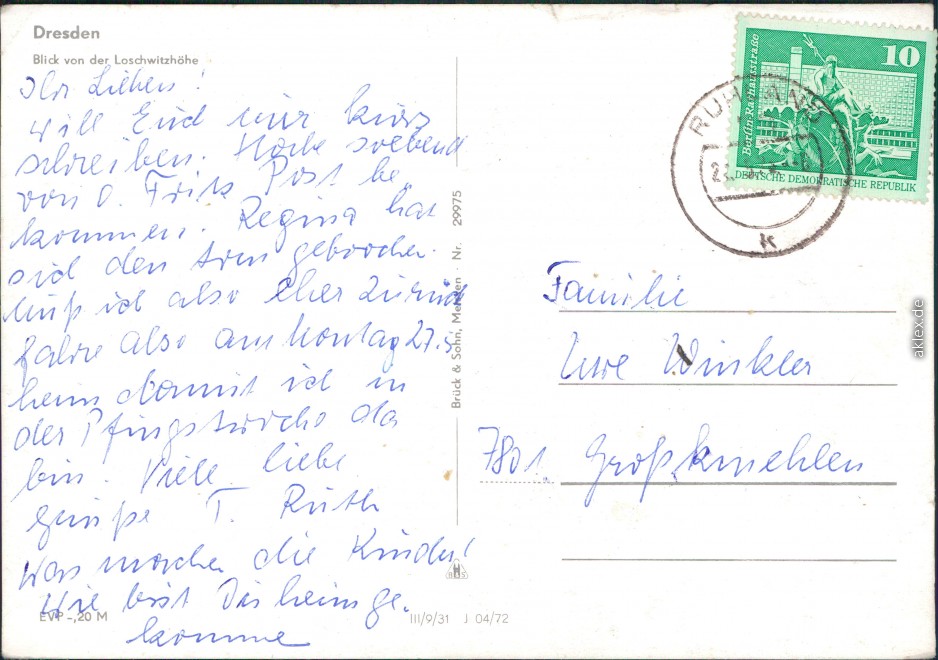 Dresden
Blick von der Loschwitzhöhe
Ihr Lieben!
will Euch nur kurz
schreiben. Habe soebend
von O. Fritz Post be
kommen. Regina hat
sich den Arm gebrochen.
Muß ich also eher zurück
fahre also am Montag 27.5
heim damit ich in
der Pfingstwoche da
bin. Viele liebe
Grüße T. Ruth
Was machen die Kinder!
Wie bist Du heimge-
komme
EVP -,20 M
III/9/31 J 04/72
Brück & Sohn, Meißen · Nr. 29975
B&S
10
Berlin-Rathausstraße
DEUTSCHE DEMOKRATISCHE REPUBLIK
RUHLAND
k
Familie
Uwe Winkler
7801 Großkmehlen
aklex.de